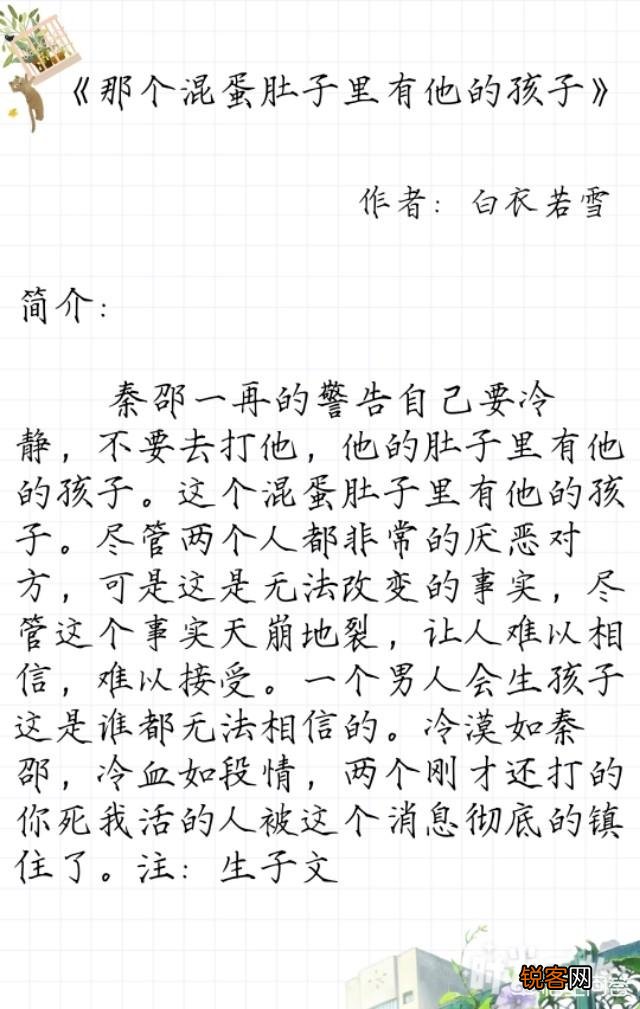 《那个混蛋肚子里有他的孩子》
作者：白衣若雪
简介：
秦邵一再的警告自己要冷
静，不要去打他，他的肚子里有他
的孩子。这个混蛋肚子里有他的孩
子。尽管两个人都非常的厌恶对
方，可是这是无法改变的事实，尽
管这个事实天崩地裂，让人难以相
信，难以接受。一个男人会生孩子
这是谁都无法相信的。冷漠如秦
邵，冷血如段情，两个刚才还打的
你死我活的人被这个消息彻底的镇
住了。注：生子文
锐客网